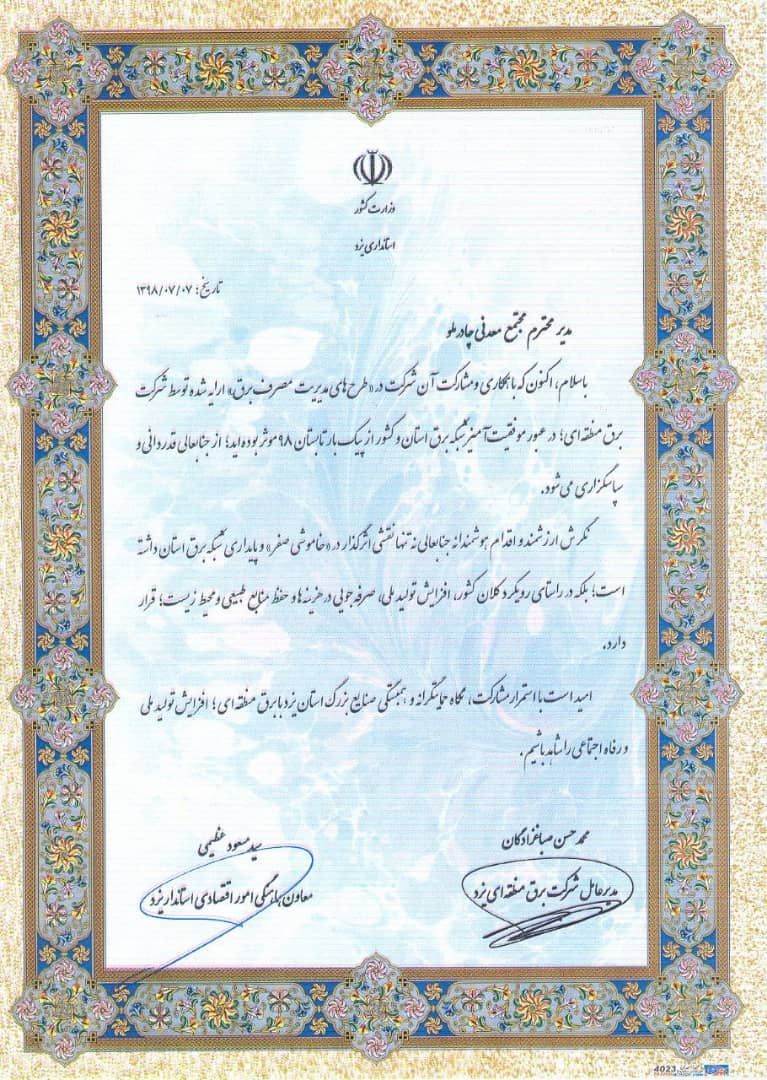 وزارت کشور
استانداری یزد
تاریخ: ۱۳۹۸/۰۷/۰۷
مدیر محترم مجتمع معدنی چادرملو
باسلام، اکنون که با همکاری و مشارکت آن شرکت در «طرح‌های مدیریت مصرف برق» ارایه شده توسط شرکت
برق منطقه‌ای؛ در عبور موفقیت‌آمیز شبکه برق استان و کشور از پیک بار تابستان ۹۸ موثر بوده‌اید؛ از جنابعالی قدردانی و
سپاسگزاری می‌شود.
نگرش ارزشمند و اقدام هوشمندانه جنابعالی نه تنها نقشی اثرگذار در «خاموشی صفر» و پایداری شبکه برق استان داشته
است؛ بلکه در راستای رویکرد کلان کشور، افزایش تولید ملی، صرفه‌جویی در هزینه‌ها و حفظ منابع طبیعی و محیط زیست؛ قرار
دارد.
امید است با استمرار مشارکت، نگاه حمایتگرانه و همبستگی صنایع بزرگ استان یزد با برق منطقه‌ای؛ افزایش تولید ملی
و رفاه اجتماعی را شاهد باشیم.
محمدحسن صباغزادگان
مدیرعامل شرکت برق منطقه‌ای یزد
سید مسعود عظیمی
معاون هماهنگی امور اقتصادی استاندار یزد
4023